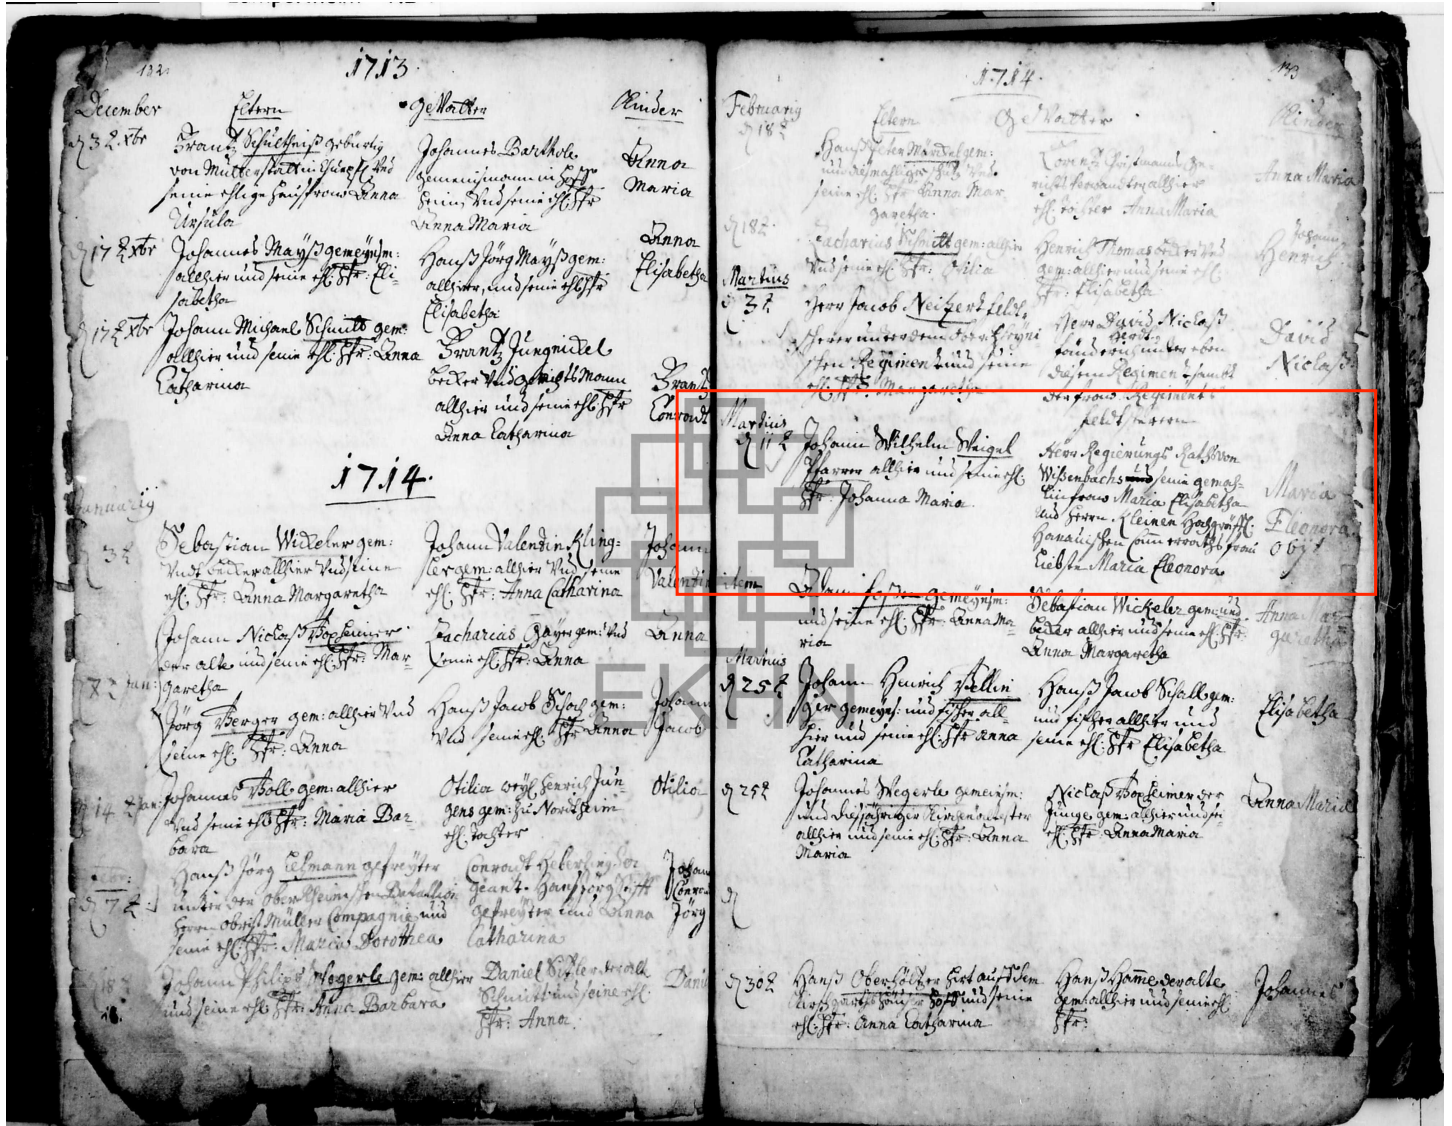 132.
1713.
December
Eltern
Gevatter
Kinder
d 3t. Xbr
Frantz Schultheiß gebürtig
von Mutterstatt in Pfaltz und
seine ehlige Hausfraw Anna
Ursula
Johannes Barthole
gemeinsmann in
heim, und seine ehl: Hfr
Anna Maria
Anna
Maria
d 17t Xbr
Johannes Mayß gemeinsm:
allhier und seine ehl. Hfr: Eli-
sabetha
Hanß Jörg Mayß gem:
allhier, und seine ehl Hfr
Elisabetha
Anna
Elisabetha
d 17t Xbr
Johann Michael Schmitt gem:
allhier und seine ehl. Hfr: Anna
Catharina
Frantz Jungnickel
becker und gerichts Mann
allhier und seine ehl. Hfr
Anna Catharina
Frantz
Conradt
1714.
Januarij
d 3t
Sebastian Wickeler gem:
und becker allhier und seine
ehl. Hfr: Anna Margaretha
Johann Valendin Kling-
ler gem: allhier und seine
ehl. Hfr: Anna Catharina
Johann
Valendin
Johann Niclaß
der alte und seine ehl. Hfr: Mar-
garetha
Zacharias Gayer gem: und
seine ehl: Hfr: Anna
Anna
d 7t Jan:
Jörg Berger gem: allhier und
seine ehl: Hfr: Anna
Hanß Jacob Schoch gem:
und seine ehl. Hfr Anna
Johann
Jacob
d 14t Jan:
Johannes Boll gem: allhier
und seine ehl Hfr: Maria Bar-
bara
Otilia weyl. Henrich Jun-
gens gem: zu Nordheim
ehl. Tochter
Otilia
d 7t
Hanß Jörg gefreyter
unter der Ober Rheinischen Batallion
Herrn obrist Müller Compagnie und
seine ehl. Hfr: Maria Dorothea
Conradt Heberling Ser-
geant. Hanß Jörg
gefreyter und Anna
Catharina
Johann
Conradt
Jörg
d 18t
Johann Philips Wegerle gem: allhier
und seine ehl. Hfr: Anna Barbara
Daniel Sittler der alt
Schmitt und seine ehl.
Hfr: Anna.
Daniel
1714.
133
Februarij
Eltern
Gevatter
Kinder
d 18t
Hanß Peter gem:
und
seine ehl. Hfr: Anna Mar
garetha.
Lorentz Christmanns ge-
richts verwandten allhier
ehl. tochter Anna Maria
Anna Maria
d 18t.
Zacharias Schmitt gem: allhier
und seine ehl. Hfr: Otilia
Henrich Thomas und
gem: allhier und seine ehl.
Hfr: Elisabetha
Johann
Henrich
Martius
d 3t
Herr Jacob Neitzert feldt
scherer unter dem
schen Regiment und seine
ehl. Hfr: Margaretha
Herr David Niclaß
fändrich unter eben
diesem Regiment sambt
der fraw Regiments
feldscherern
David
Niclaß
Martius
d 11t
Johann Wilhelm Weigel
Pfarrer allhier und seine ehl.
Hfr: Johanna Maria
Herr Regierungs Raths von
Wißenbachs und seine gemah-
lin fraw Maria Elisabetha
und Herrn Kleinen Hochgräffl.
Hanauischen Cammerraths fraw
Liebste Maria Eleonora
Maria
Eleonora
obijt
item
Adam gemeinsm:
und seine ehl. Hfr: Anna Ma-
ria
Sebastian Wickeler gem: und
becker allhier und seine ehl. Hfr:
Anna Margaretha
Anna Mar-
garetha
Martius
d 25t
Johann Henrich Bellin
ger gemeins: und fischer all-
hier und seine ehl: Hfr Anna
Catharina
Hanß Jacob Schall gem:
und fischer allhier und
seine ehl: Hfr Elisabetha
Elisabetha
d 25t
Johannes Wegerle gemeinsm:
und dießjähriger Kirchenältester
allhier und seine ehl. Hfr: Anna
Maria
Niclaß der
Junge gem: allhier und sei-
ehl. Hfr: Anna Maria
Anna Maria
d
d 30t
Hanß Oberhöltzer hirt auff dem
hoff und seine
ehl. Hfr: Anna Catharina
Hanß Hamme der alte
gem: allhier und seine ehl.
Hfr:
Johannes
EKHN